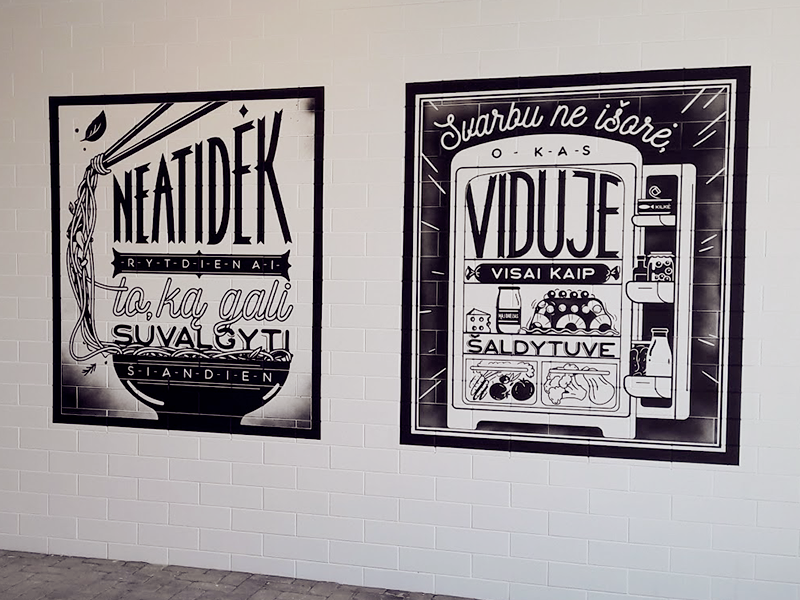 NEATIDĖK
R-Y-T-D-I-E-N-A-I
to, ką gali
SUVALGYTI
Š-I-A-N-D-I-E-N
Svarbu ne išorė,
O-KAS
VIDUJE
VISAI KAIP
ŠALDYTUVE
KILKĖ